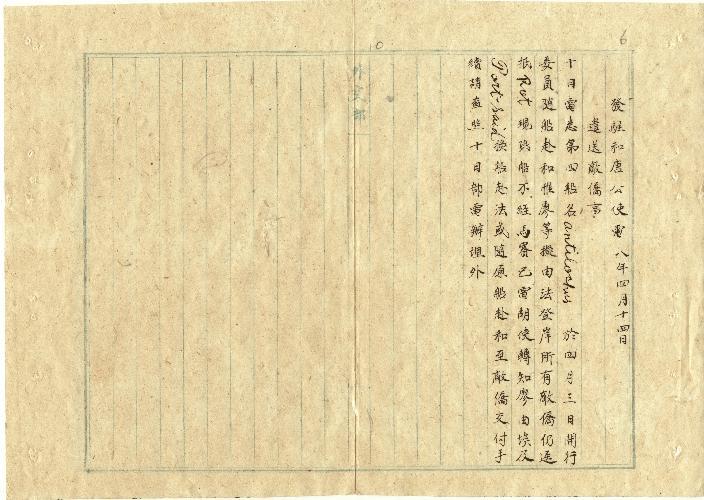 6
發駐和唐公使電 八年四月十四日
遣送敵僑事
十日電悉第四船名antilochus 於四月三日開行
委員隨船赴和惟廖等擬由法登岸所有敵僑仍逕
抵Rot 現該船不經馬賽已電胡使轉知廖由埃及
Port-Said換船赴法或隨原船赴和至敵僑交付手
續請查照十日部電辦理外
外交部